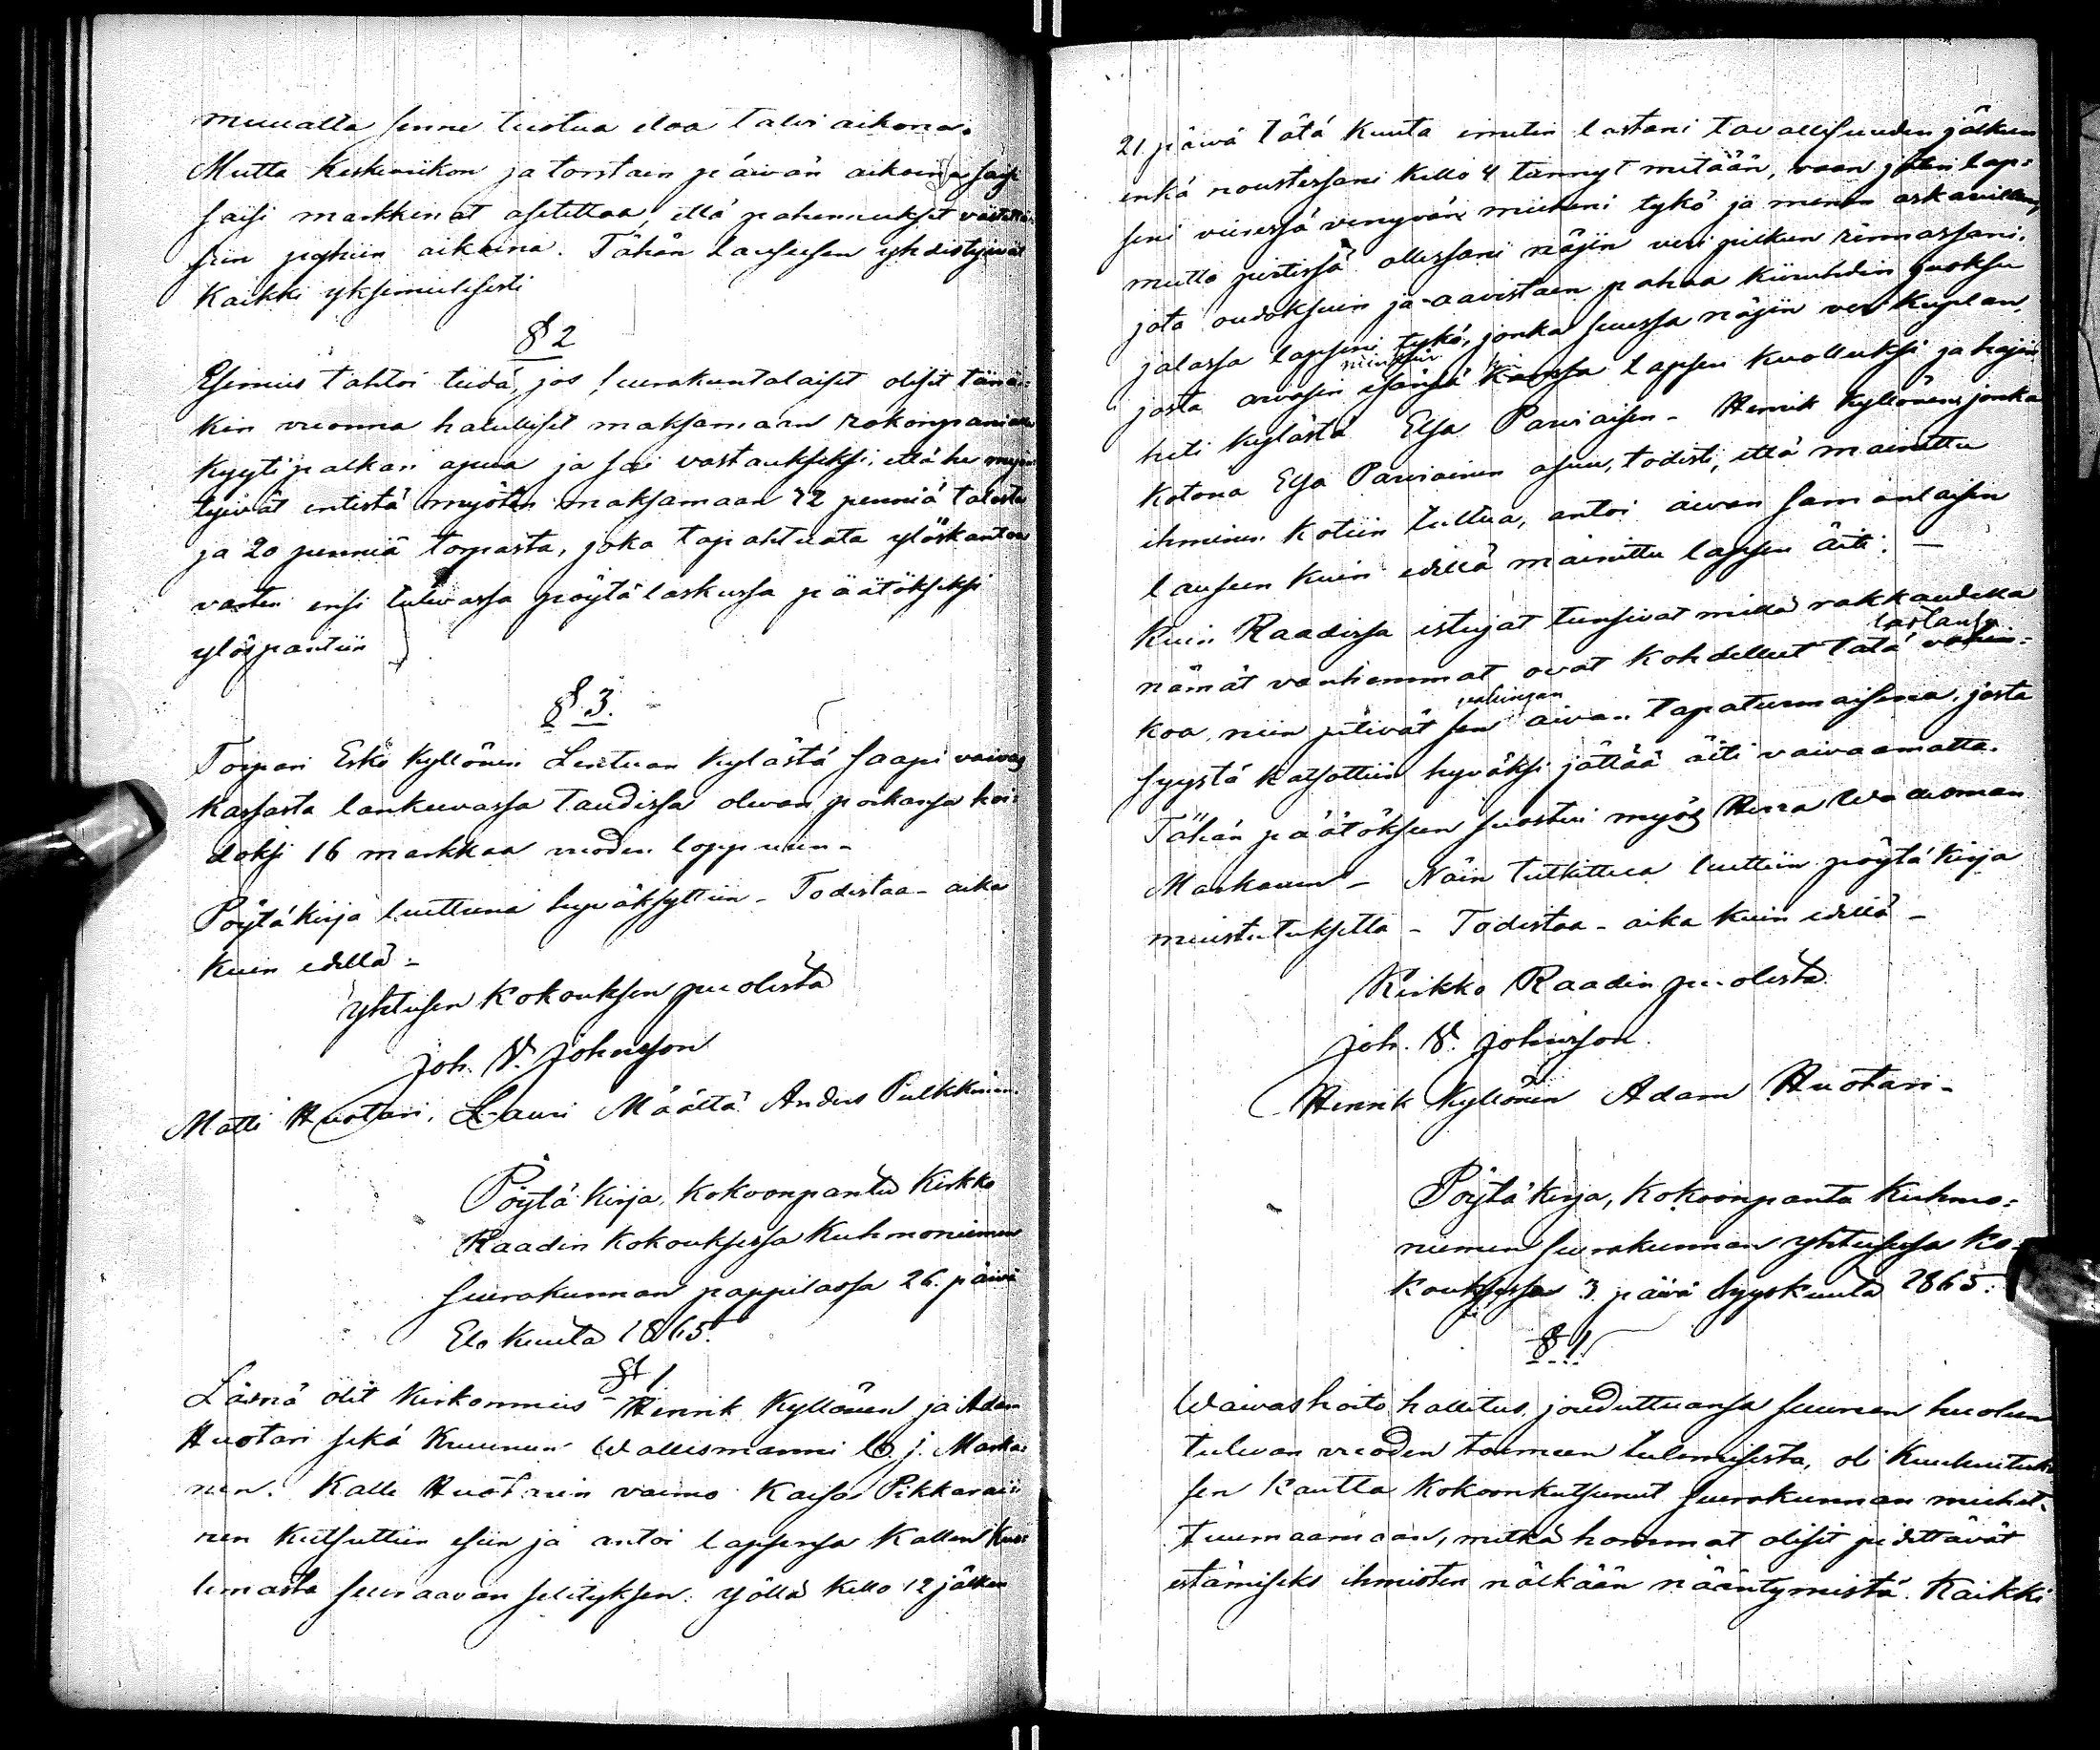 muualta senne tuotua eloa talvi aikona.
Mutta keskiviikon ja torstain päivän aikoina
saisi markkinat asetettaa, että pahennukset
siin pyhiin aikoina. Tähän lauseesen yhdistyivät
kaikki yksimielisesti
§ 2
Esimies tahtoi tiedä, jos seurakuntalaiset olisit tänä-
kin vuonna halulliset maksamaan rokonpanian
kyytipalkan apua ja sai vastaukseksi, että he myön
tyivät entistä myöten maksamaan 42 penniä talosta
ja 20 penniä torpasta, joka tapahtuata ylöskanton
varten ensi tulevassa pöytälaskussa päätökseksi
ylöspantiin
§ 3.
Torpari Esko Kyllönen Lentuan kylästä saapi vaivas
kassasta lankeevassa taudissa olevan poikansa hoi-
doksi 16 markkaa vuoden loppuun -
Pöytäkirja luettuna hyväksyttiin - Todistaa - aika
kuin edellä -
Yhteisen kokouksen puolesta
Joh. V. Johnsson
Matti Huotari, Lauri Määttä Anders Pulkkinen.
Pöytäkirja, kokoonpantu Kirkko
Raadin kokouksessa Kuhmoniemen
seurakunnan pappilassa 26. päivä
Elo kuuta 1865.
§ 1
Läsnä olit kirkonmies Henrik Kyllönen ja Adam
Huotari sekä kruunun Wallesmanni J. Marka-
nen. Kalle Huotarin vaimo Kaisa Pikkarai-
nen kutsuttiin esiin ja antoi lapsensa Kallen kuo-
lemasta seuraavan selityksen: yöllä kello 12 jälken
21. päivä tätä kuuta imetin lastani tavallisuuden jälkeen
enkä noustessani kello 4 tiennyt mitään, vaan jätin lap-
seni vieressä venyvän mieheni tykö ja menin askareillen,
mutta pirtissä ollessani näjin veri pilkun rinnassani,
jota oudoksuin ja aavistaen pahaa kiiruhdin juoksu
jalassa lapseni tykö, jonka suussa näjin veri kuplan,
niin kuin
josta arvasin isänsä kanssa lapsen kuolleeksi ja hajin
heti kylästä Elsa Parviaisen - Henrik Kyllönen, jonka
kotona Elsa Parviainen asuu, todisti, että mainittu
ihminen kotiin tultua, antoi aivan samanlaisen
lauseen kuin edellä mainittu lapsen äiti. -
Kuin Raadissa istujat tunsivat millä rakkaudella
lastansa
nämät vanhemmat ovat kohdelleet tätä vahin-
vahingon
koa, niin pitivät sen aivan tapaturmaisena, josta
syystä katsottiin hyväksi jättää äiti vaivaamatta.
Tähän päätökseen suostui myös Herra
Markanen - Näin tutkittua luettiin pöytäkirja
muistutuksetta - Todistaa - aika kuin edellä -
Kirkko Raadin puolesta
Joh. V. Johnsson.
Henrik Kyllönen Adam Huotari -
Pöytäkirja, kokoonpantu Kuhmo-
niemen seurakunnan yhteisessä ko-
kouksessa 3. päivä Syyskuuta 1865.
§ 1.
Waivashoito hallitus, jouduttuansa suureen huoleen
tulevan vuoden toimeen tulemisesta, oli kuulutuk-
sen kautta kokoonkutsunut seurakunnan miehet
tuumaamaan, mitkä hommat olisit pidettävät
estämiseks ihmisten nälkään nääntymistä. Kaikki